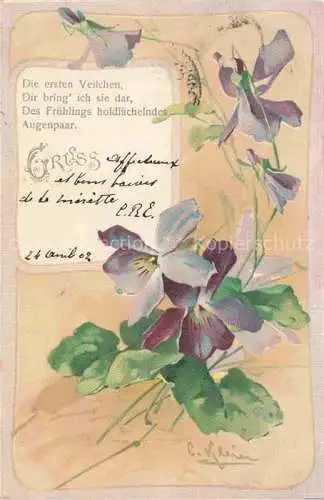 Die ersten Veilchen,
Dir bring' ich sie dar,
Des Frühlings holdlächelndes
Augenpaar.
GRUSS
Affectueux
et bons baisers
de la
E.R.E.
24 avril 02
C. Klein